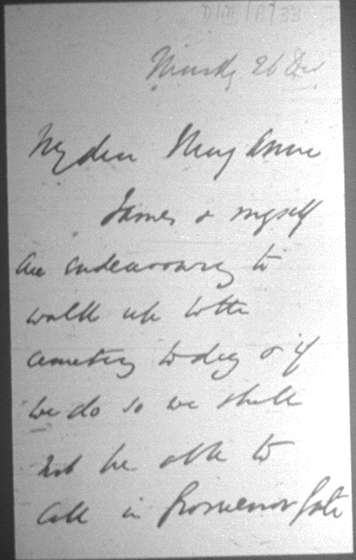 Thursday 26 Dec
My dear Mary Anne
James & myself
are endeavouring to
walk up to the
cemetery today & if
we do so we shall
not be able to
call in Grosvenor Gate